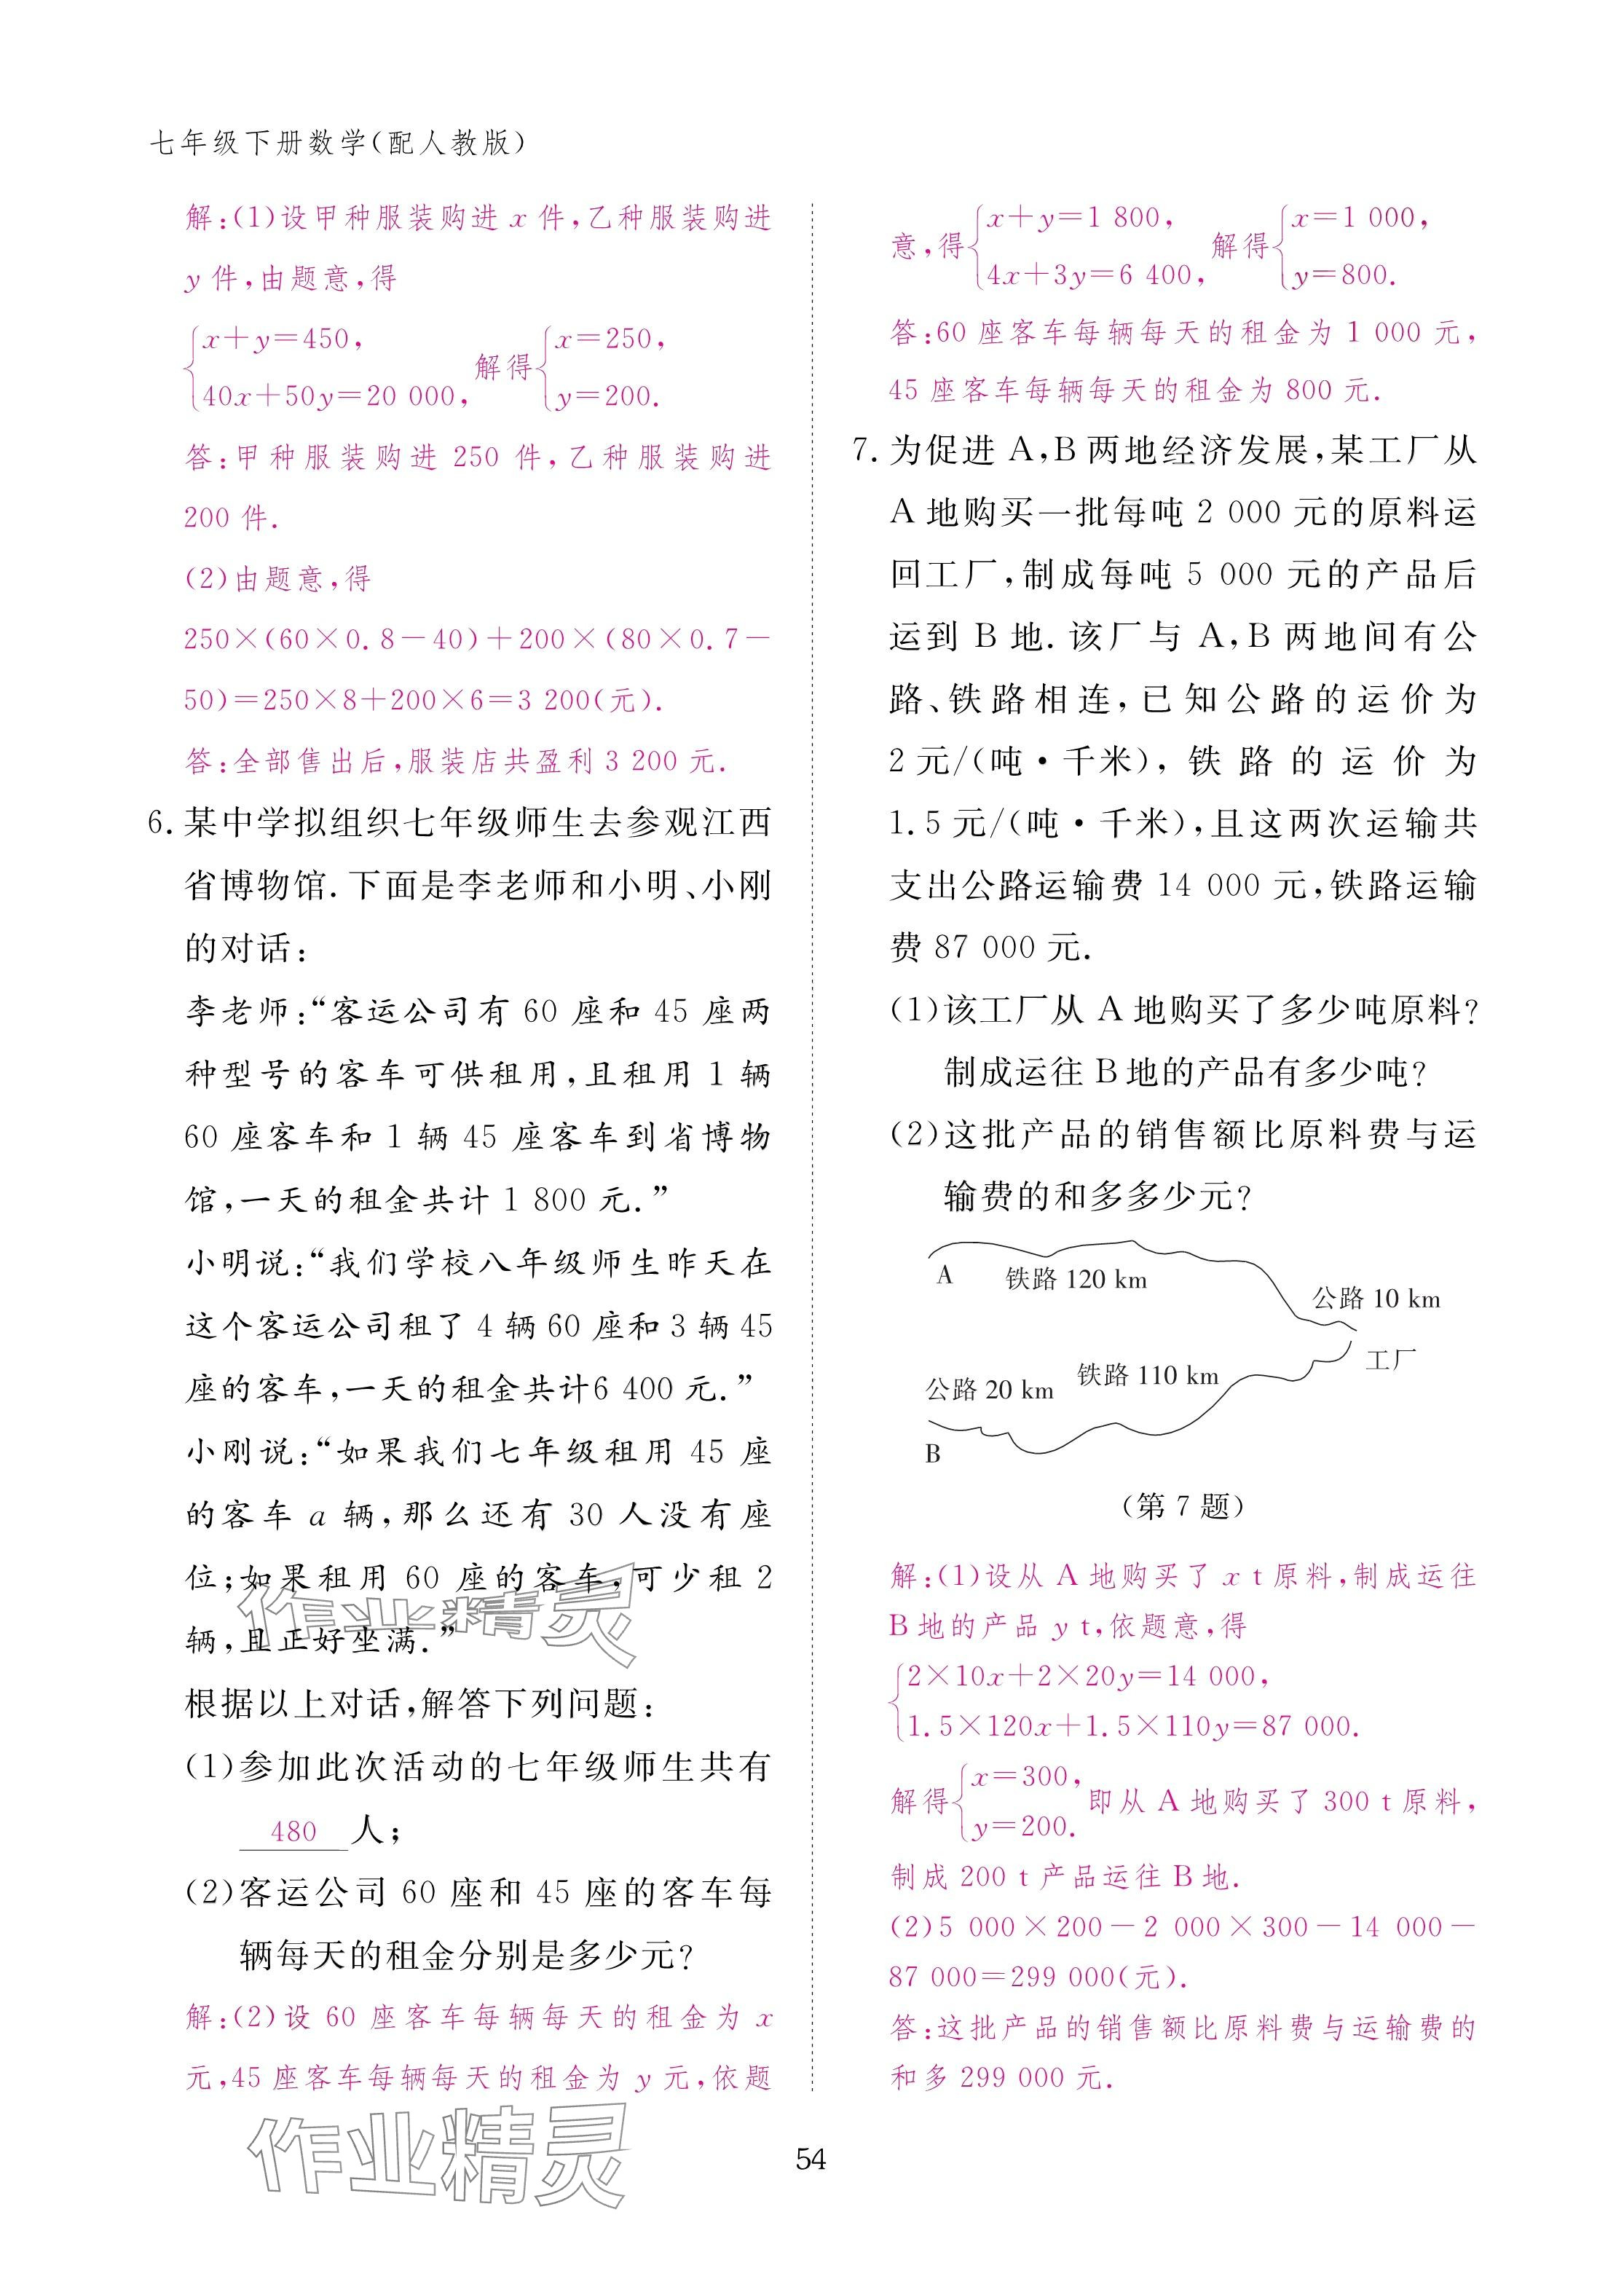 七年级下册数学(配人教版)
解:(1)设甲种服装购进 x 件,乙种服装购进
y 件,由题意,得
x+y=450,
40x+50y=20 000,
解得
x=250,
y=200.
答:甲种服装购进 250 件,乙种服装购进
200 件.
(2)由题意,得
250×(60×0.8-40)+200×(80×0.7-
50)=250×8+200×6=3 200(元).
答:全部售出后,服装店共盈利 3 200 元.
6. 某中学拟组织七年级师生去参观江西
省博物馆. 下面是李老师和小明、小刚
的对话:
李老师:“客运公司有 60 座和 45 座两
种型号的客车可供租用,且租用 1 辆
60 座客车和 1 辆 45 座客车到省博物
馆,一天的租金共计 1 800 元.”
小明说:“我们学校八年级师生昨天在
这个客运公司租了 4 辆 60 座和 3 辆 45
座的客车,一天的租金共计6 400 元.”
小刚说:“如果我们七年级租用 45 座
的客车 a 辆,那么还有 30 人没有座
位;如果租用 60 座的客车,可少租 2
辆,且正好坐满.”
根据以上对话,解答下列问题:
(1)参加此次活动的七年级师生共有
480 人;
(2)客运公司 60 座和 45 座的客车每
辆每天的租金分别是多少元?
解:(2)设 60 座客车每辆每天的租金为 x
元,45 座客车每辆每天的租金为 y 元,依题
意,得
x+y=1 800,
4x+3y=6 400,
解得
x=1 000,
y=800.
答:60 座客车每辆每天的租金为 1 000 元,
45 座客车每辆每天的租金为 800 元.
7. 为促进 A,B 两地经济发展,某工厂从
A 地购买一批每吨 2 000 元的原料运
回工厂,制成每吨 5 000 元的产品后
运到 B 地. 该厂与 A,B 两地间有公
路、铁路相连,已知公路的运价为
2 元/(吨·千米),铁路的运价为
1.5 元/(吨·千米),且这两次运输共
支出公路运输费 14 000 元,铁路运输
费 87 000 元.
(1)该工厂从 A 地购买了多少吨原料?
制成运往 B 地的产品有多少吨?
(2)这批产品的销售额比原料费与运
输费的和多多少元?
A
铁路 120 km
公路 10 km
工厂
铁路 110 km
公路 20 km
B
(第 7 题)
解:(1)设从 A 地购买了 x t 原料,制成运往
B 地的产品 y t,依题意,得
2×10x+2×20y=14 000,
1.5×120x+1.5×110y=87 000.
解得
x=300,
y=200.
即从 A 地购买了 300 t 原料,
制成 200 t 产品运往 B 地.
(2)5 000×200-2 000×300-14 000-
87 000=299 000(元).
答:这批产品的销售额比原料费与运输费的
和多 299 000 元.
作业精灵
作业精灵
54